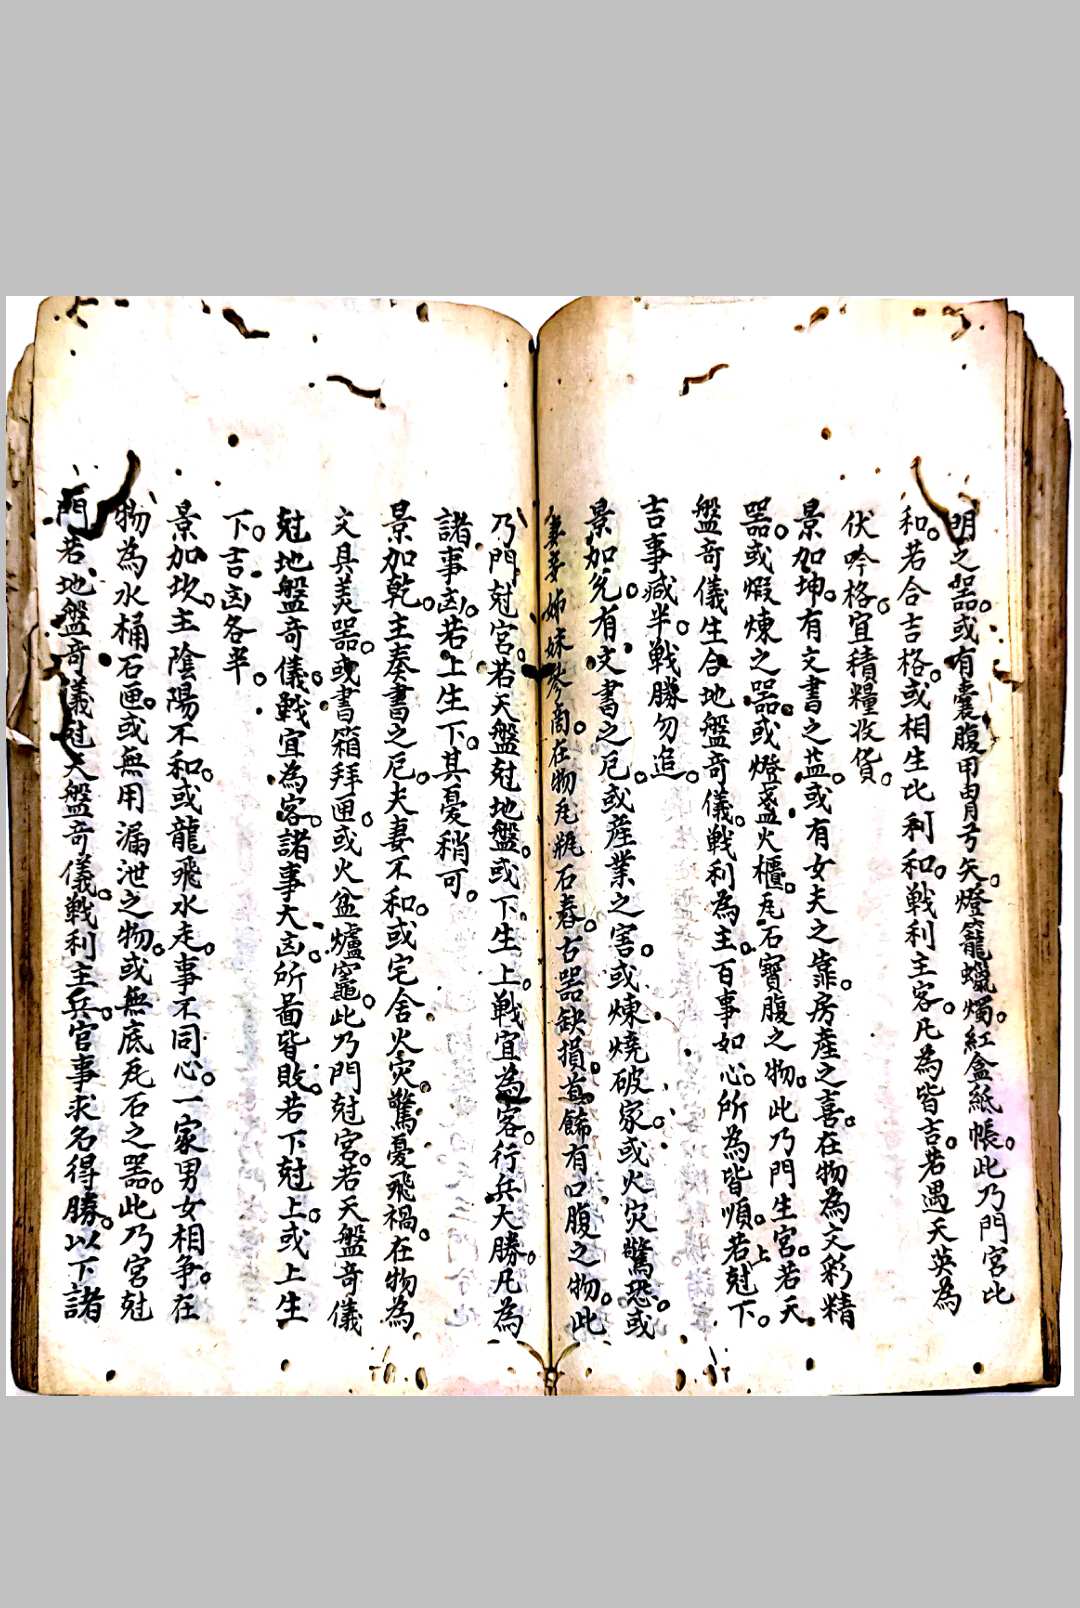 明之器。或有囊腹甲冑弓矢。燈籠蠟燭。紅盒紙帳。此乃門宮比
和。若合吉格。或相生比利和。戦利主客。凡為皆吉。若遇天英為
伏吟格。宜積糧收貨。
景加坤。有文書之益。或有女夫之靠。房產之喜。在物為文彩精
器。或煆煉之器。或燈盞火櫃。瓦石寶腹之物。此乃門生宮。若天
盤奇儀生合地盤奇儀。戦利為主。百事如心。所為皆順。若上尅下。
吉事减半。戦勝勿追。
景加兑。有文書之厄。或産業之害。或煉燒破家。或火灾驚恐。或
妻妾姊妹參商。在物瓦瓶石舂。古器缺損。首飾有口腹之物。此
乃門尅宮。若天盤尅地盤。或下生上。戦宜為客。行兵大勝。凡為
諸事凶。若上生下。其憂稍可。
景加乾。主奏書之厄。夫妻不和。或宅舍火灾。驚憂飛禍。在物為
文具美器。或書箱拜匣。或火盆爐竈。此乃門尅宮。若天盤奇儀
尅地盤奇儀。戦宜為客。諸事大凶。所啚皆敗。若下尅上。或上生
下。吉凶各半。
景加坎。主陰陽不和。或龍飛水走。事不同心。一家男女相争。在
物為水桶石匣。或無用漏泄之物。或無底瓦石之器。此乃宮尅
門。若地盤奇儀尅天盤奇儀。戦利主兵。官事求名得勝。以下諸